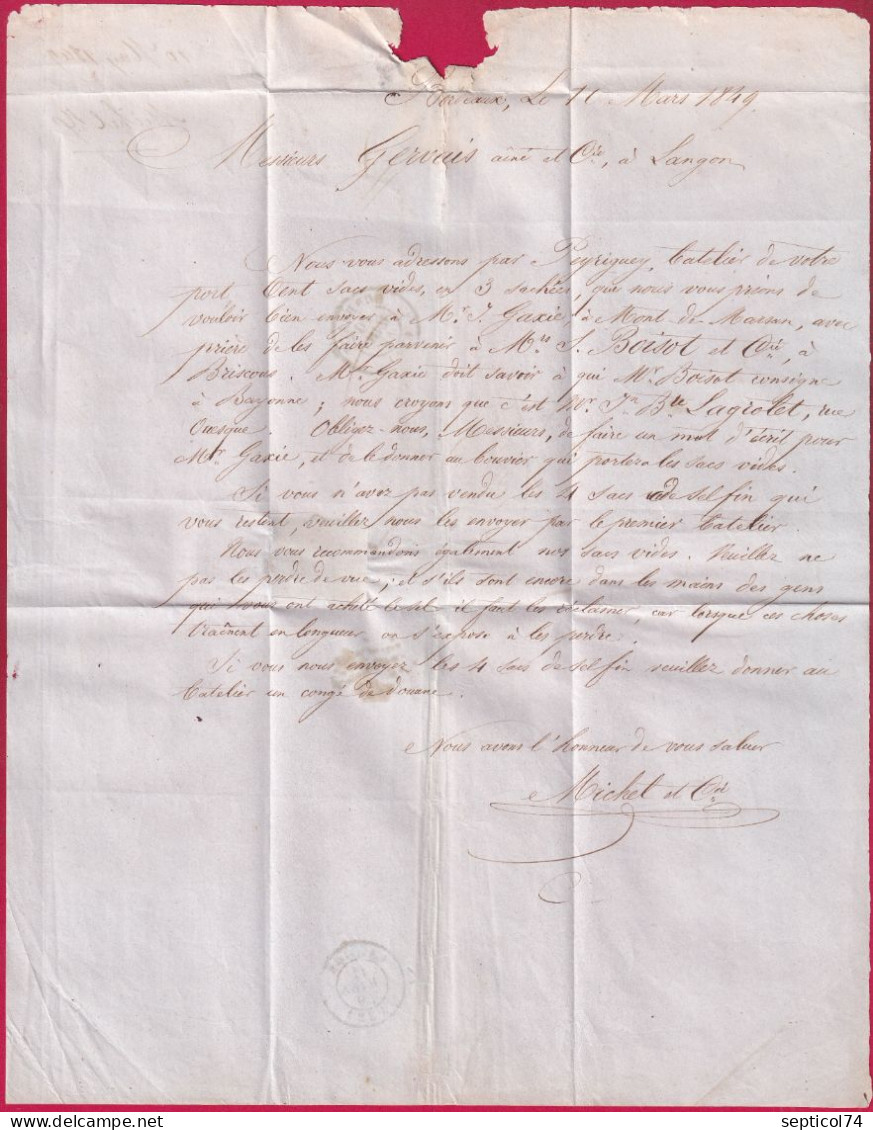 Bordeaux, Le 11 Mars 1849
Messieurs Gervais ainé et Cie, à Langon
Nous vous adressons par Peyriguey, batelier de votre
port, Cent sacs vides, en 3 sachées, que nous vous prions de
vouloir bien envoyer à Mr. J. Gaxie, à Mont de Marsan, avec
prière de les faire parvenir à Mrs J. Boisot et Cie, à
Briscous. Mr. Gaxie doit savoir à qui Mr. Boisot consigne
à Bayonne; nous croyons que c'est Mr. Jn Bte Lagiolet, rue
Ouesque. Obligez-nous, Messieurs, de faire un mot d'écrit pour
Mr. Gaxie, et de le donner au bouvier qui portera les sacs vides.
Si vous n'avez pas vendu les 4 sacs de sel fin qui
vous restent, veuillez nous les envoyer par le premier batelier.
Nous vous recommandons également nos sacs vides. Veuillez ne
pas les perdre de vue; et s'ils sont encore dans les mains des gens
qui vous ont acheté le sel il faut les réclamer, car lorsque ces choses
traînent en longueur on s'expose à les perdre.
Si vous nous envoyez les 4 sacs de sel fin veuillez donner au
batelier un congé de douane.
Nous avons l'honneur de vous saluer
Michel et Cie
septicol74